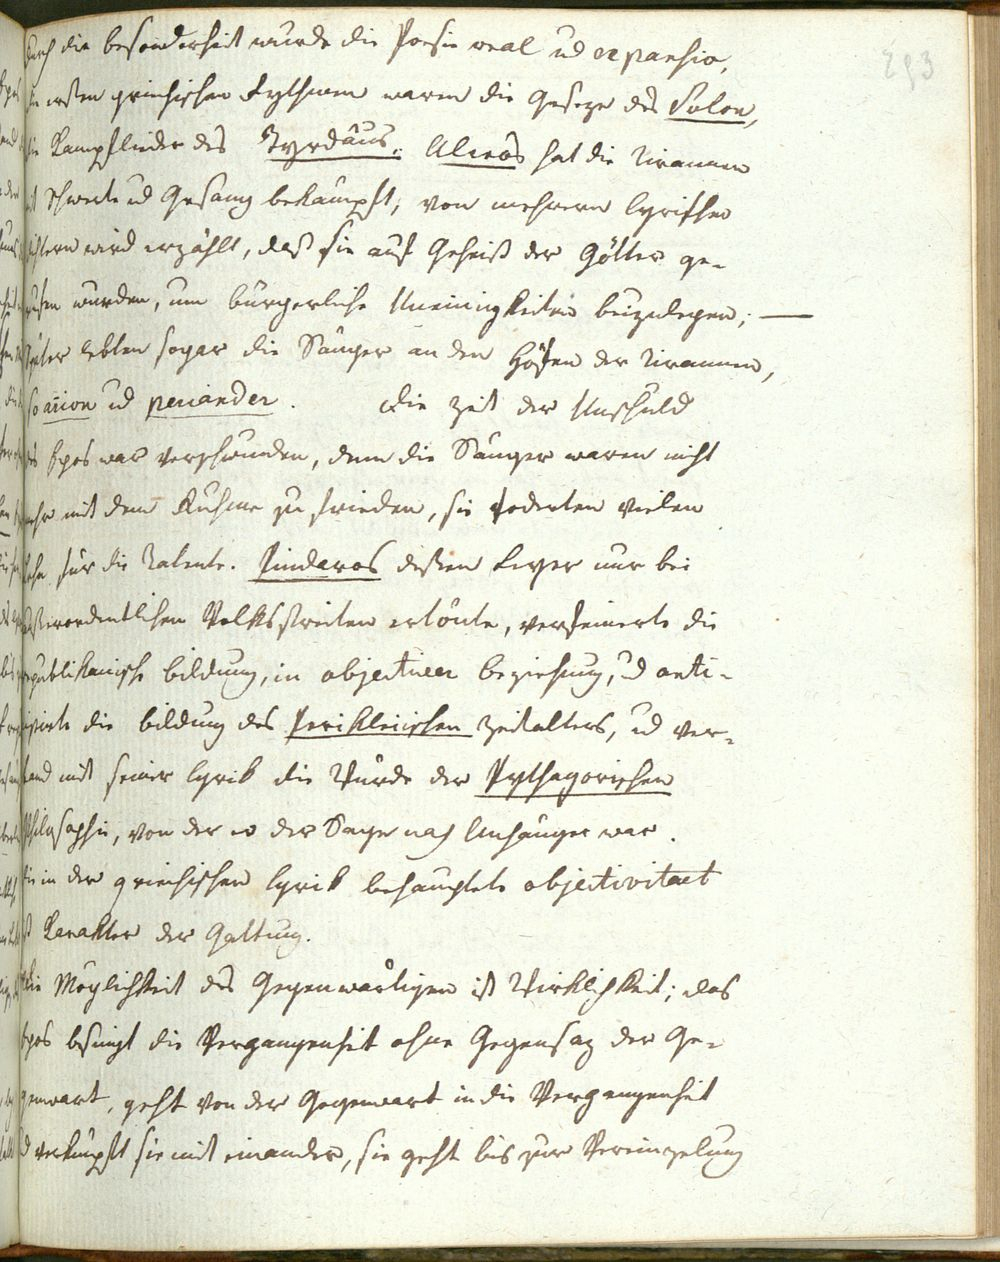 293
durch die besonderheit wurde die Poesie real ud expansiv,
die ersten griechischen Rythmen waren die Geseze des Solon,
die Kampflieder des Tyrdäus. Alcäos hat die Tirannen
mit Schwerte ud Gesang bekämpft, von mehrern lyrischen
dichtern wird erzählt, daß sie auf Geheiß der Götter ge-
rufen wurden, um bürgerliche Uneinigkeiten beizulegen; —
später lebten sogar die Sänger an den Höfen der Tirannen,
so arion ud periander. Die Zeit der Unschuld
des Epos war verschwunden, denn die Sänger waren nicht
mehr mit dem Ruhme zu frieden, sie foderten vielen
Lohn für die Talente. Pindaros deßen Leyer nur bei
außerordentlichen Volksstreiten ertönte, verfeinerte die
republikanische bildung, in objectiver beziehung, ud anti-
cipirte die bildung des Perikleischen Zeitalters, ud ver-
band mit seiner lyrik die Würde der Pythagorischen
Philosophie, von der er der Sage nach Anhänger war.
die in der griechischen lyrik behauptete objectivitaet
ist Karakter der Gattung.
die Möglichkeit des Gegenwärtigen ist Wirklichkeit; das
Epos besingt die Vergangenheit ohne Gegensaz der Ge-
genwart, geht von der Gegenwart in die Vergangenheit
ud verknüpft sie mit einander, sie geht bis zur Vereinzelung